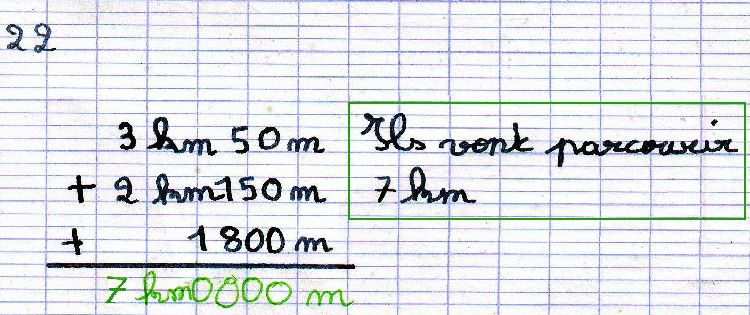 22
3 km 50 m
+ 2 km 150 m
+ 1800 m
7 km 0000 m
Ils vont parcourir
7 km